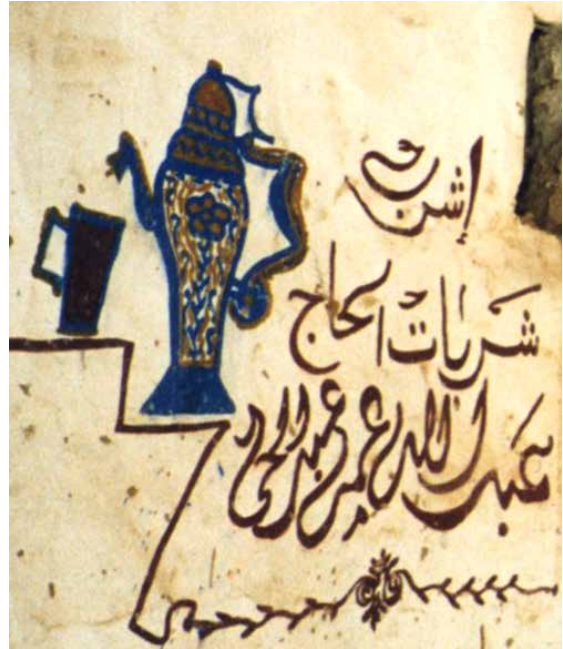 إشرب
شربات الحاج
عبد الله عمر عبد الحي